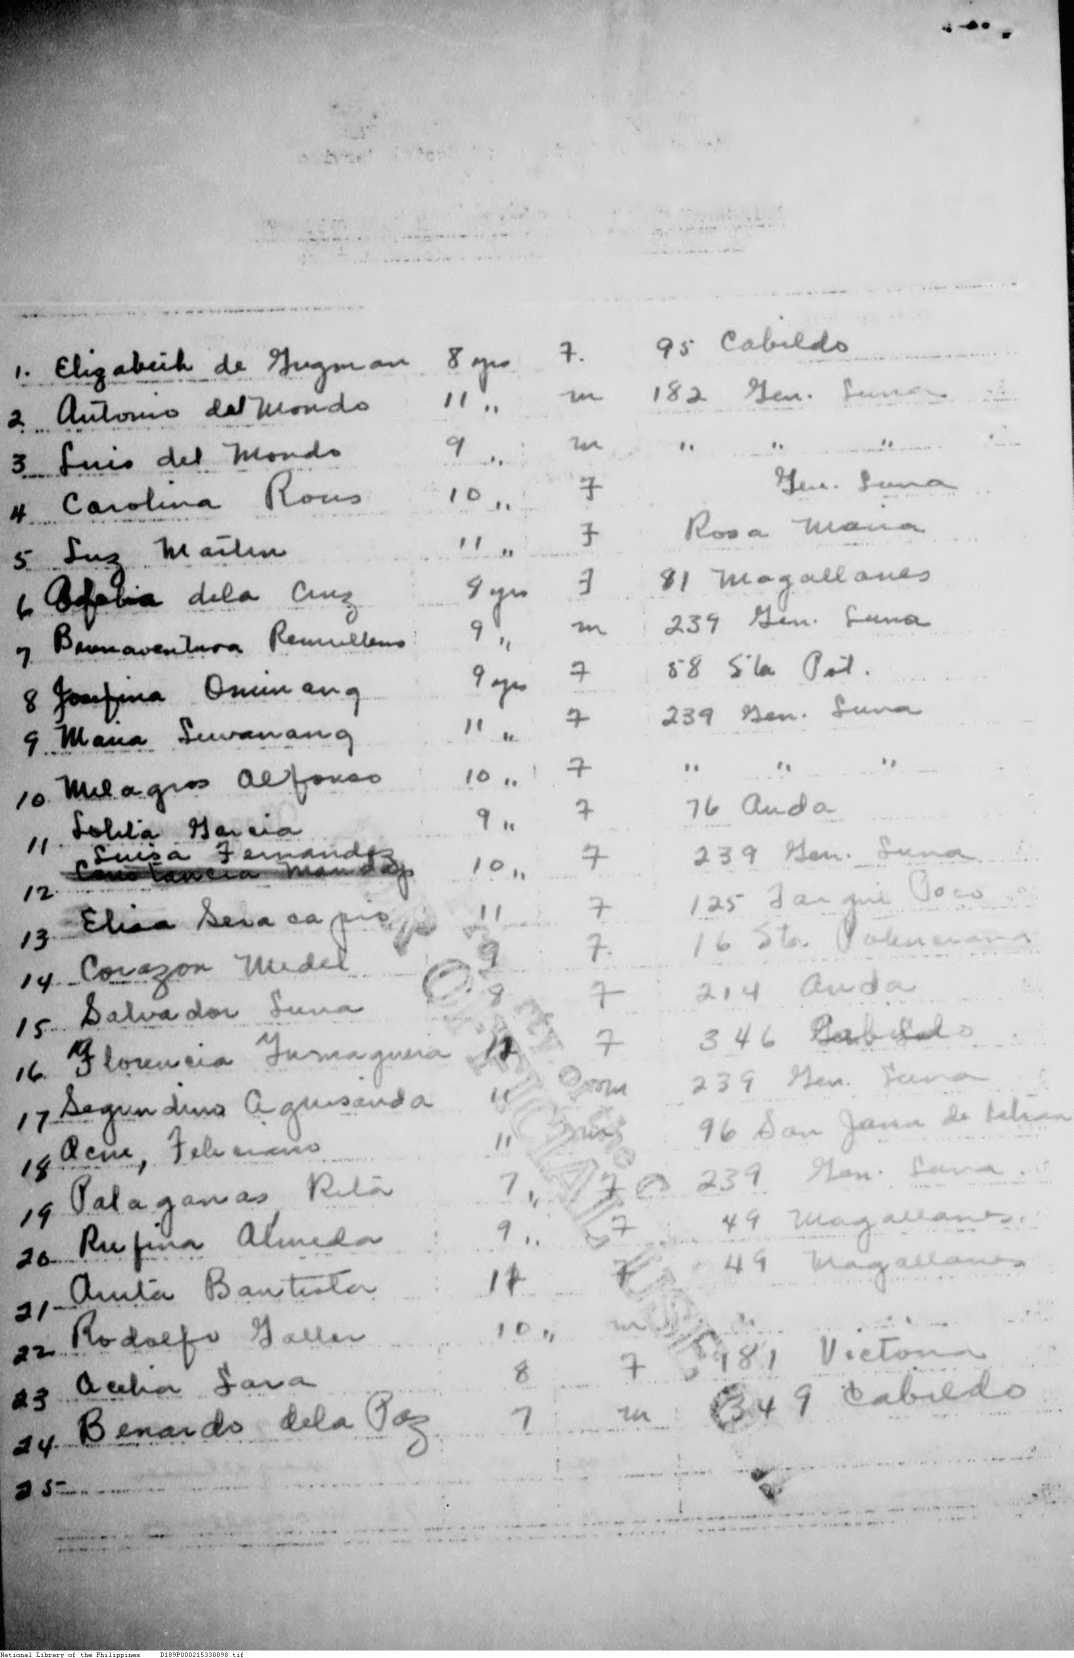 1. Elizabeth de Guzman 8 yrs F. 95 Cabildo
2 Antonio del Mondo 11 " m 182 Gen. Luna
3 Luis del Mondo 9 " m " " "
4 Carolina Rous 10 " F Gen. Luna
5 Luz Martin 11 " F Rosa Maria
6 dela Cruz 8 yrs F 81 Magallanes
7 Buenaventura 9 " m 239 Gen. Luna
8 Josefina 9 yrs F 58 Sta Pot.
9 Maria Luwanang 11 " F 239 Gen. Luna
10 Milagros Alfonso 10 " F " " "
11 Lolita Garcia 9 " F 76 Anda
Luisa Fernandez
12 Constancia 10 " F 239 Gen. Luna
13 Elisa 11 F 125 Poco
14 Corazon Medel 9 F. 16 Sta. Potenciana
15 Salvador Luna 8 F 214 Anda
16 Florencia F 346 Cabildo
17 Segundino Aguisanda 11 m 239 Gen. Luna
18 Acne, Feliciano 11 96 San Juan de Letran
19 Palaganas, Rita 7 " F 239 Gen. Luna
20 Rufina Almeda 9 " F 49 Magallanes
21 Anita Bautista F 49 Magallanes
22 Rodolfo 10 " m " "
23 Acelia Lara 8 F 181 Victoria
24 Benardo dela Paz 7 m 349 Cabildo
25
OFFICIAL USE
National Library of the Philippines D189P000215338098.tif